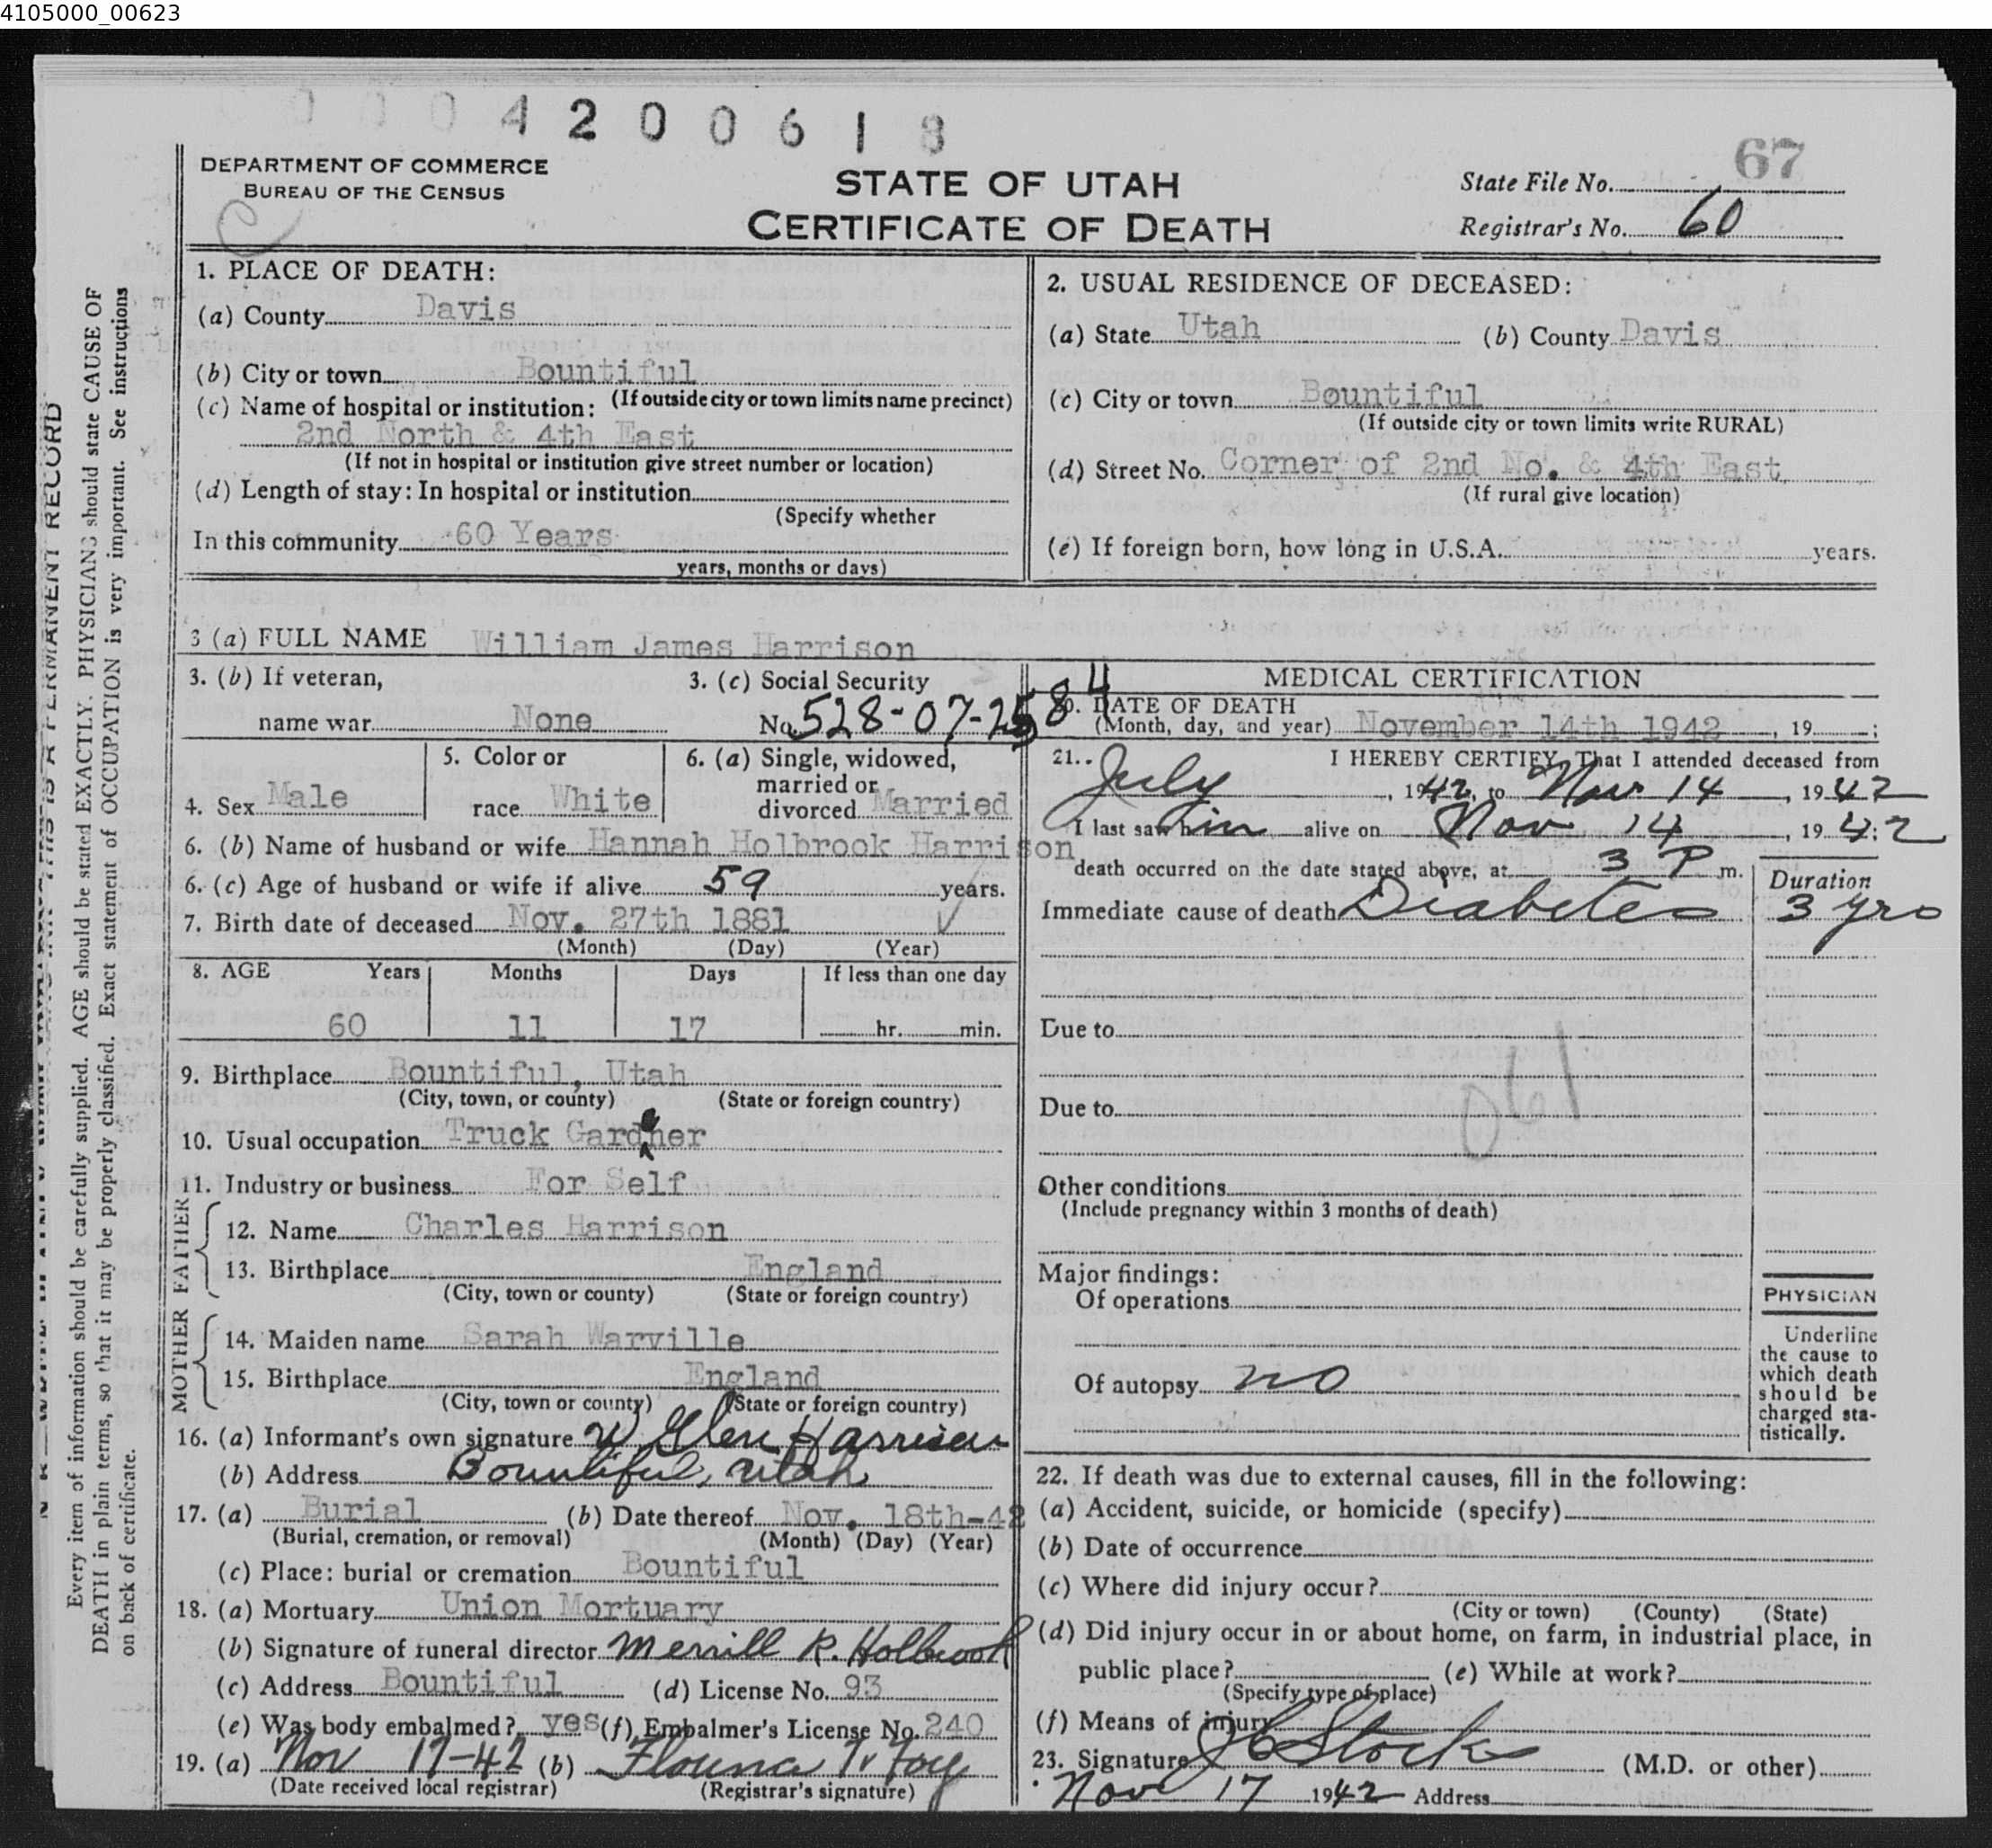 4105000_00623
0 0 0 4 2 0 0 6 1 8
67
DEPARTMENT OF COMMERCE
BUREAU OF THE CENSUS
STATE OF UTAH
CERTIFICATE OF DEATH
State File No.
Registrar's No. 60
1. PLACE OF DEATH:
(a) County Davis
(b) City or town Bountiful
(If outside city or town limits name precinct)
(c) Name of hospital or institution:
2nd North & 4th East
(If not in hospital or institution give street number or location)
(d) Length of stay: In hospital or institution
(Specify whether
In this community 60 Years
years, months or days)
2. USUAL RESIDENCE OF DECEASED:
(a) State Utah (b) County Davis
(c) City or town Bountiful
(If outside city or town limits write RURAL)
(d) Street No. Corner of 2nd No. & 4th East
(If rural give location)
(e) If foreign born, how long in U.S.A. years.
3 (a) FULL NAME William James Harrison
3. (b) If veteran,
name war None
3. (c) Social Security
No. 528-07-2584
4. Sex Male
5. Color or
race White
6. (a) Single, widowed,
married or
divorced Married
6. (b) Name of husband or wife Hannah Holbrook Harrison
6. (c) Age of husband or wife if alive 59 years.
7. Birth date of deceased Nov. 27th 1881
(Month) (Day) (Year)
8. AGE Years Months Days If less than one day
60 11 17 hr. min.
9. Birthplace Bountiful, Utah
(City, town, or county) (State or foreign country)
10. Usual occupation Truck Gardner
11. Industry or business For Self
FATHER
12. Name Charles Harrison
13. Birthplace England
(City, town or county) (State or foreign country)
MOTHER
14. Maiden name Sarah Warville
15. Birthplace England
(City, town or county) (State or foreign country)
16. (a) Informant's own signature W Glen Harrison
(b) Address Bountiful, Utah
17. (a) Burial (b) Date thereof Nov. 18th-42
(Burial, cremation, or removal) (Month) (Day) (Year)
(c) Place: burial or cremation Bountiful
18. (a) Mortuary Union Mortuary
(b) Signature of funeral director Merrill R. Holbrook
(c) Address Bountiful (d) License No. 93
(e) Was body embalmed? yes (f) Embalmer's License No. 240
19. (a) Nov 17-42 (b)
(Date received local registrar) (Registrar's signature)
MEDICAL CERTIFICATION
DATE OF DEATH
(Month, day, and year) November 14th 1942, 19 ;
21. I HEREBY CERTIFY, That I attended deceased from
July, 1942, to Nov 14, 1942
I last saw him alive on Nov 14, 1942
death occurred on the date stated above, at 3 P m.
Duration
Immediate cause of death Diabetes 3 yrs
Due to
61
Due to
Other conditions
(Include pregnancy within 3 months of death)
Major findings:
Of operations
Of autopsy no
PHYSICIAN
Underline
the cause to
which death
should be
charged sta-
tistically.
22. If death was due to external causes, fill in the following:
(a) Accident, suicide, or homicide (specify)
(b) Date of occurrence
(c) Where did injury occur?
(City or town) (County) (State)
(d) Did injury occur in or about home, on farm, in industrial place, in
public place? (e) While at work?
(Specify type of place)
(f) Means of injury
23. Signature Stocks (M.D. or other)
Nov 17 1942 Address
Every item of information should be carefully supplied. AGE should be stated EXACTLY. PHYSICIANS should state CAUSE OF
DEATH in plain terms, so that it may be properly classified. Exact statement of OCCUPATION is very important. See instructions
on back of certificate.
THIS IS A PERMANENT RECORD